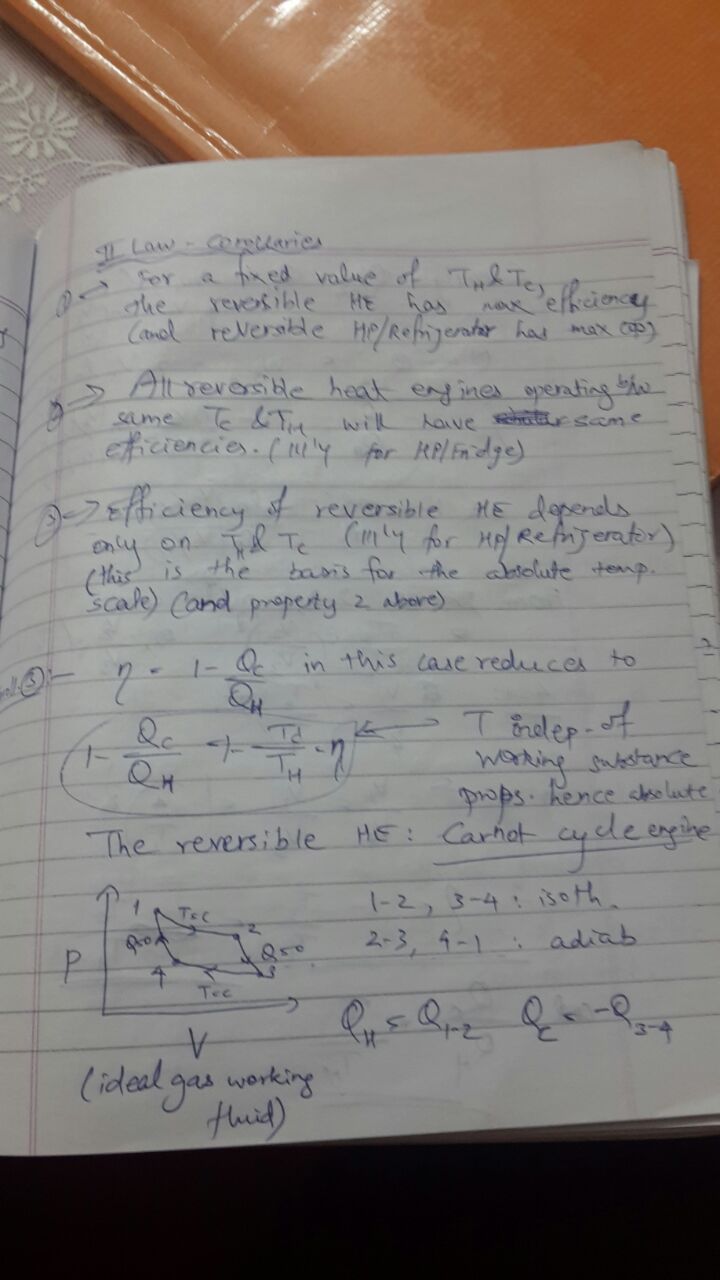 II Law - Corollaries
① → For a fixed value of T_H & T_C,
the reversible HE has max efficiency
(and reversible HP/Refrigerator has max COP)
② → All reversible heat engines operating b/w
same T_C & T_H will have same
efficiencies. (lll'y for HP/Fridge)
③ → Efficiency of reversible HE depends
only on T_H & T_C (lll'y for HP/Refrigerator)
(this is the basis for the absolute temp.
scale) (and property 2 above)
③:- η = 1 - Q_C/Q_H in this case reduces to
1 - Q_C/Q_H = 1 - T_C/T_H = η ← T indep. of
working substance
props. hence absolute
The reversible HE: Carnot cycle engine
1 T=C 2
Q=0 Q=0
4 T=C 3
P
V
1-2, 3-4 : isoth.
2-3, 4-1 : adiab
Q_H = Q_1-2 Q_C = -Q_3-4
(ideal gas working
fluid)